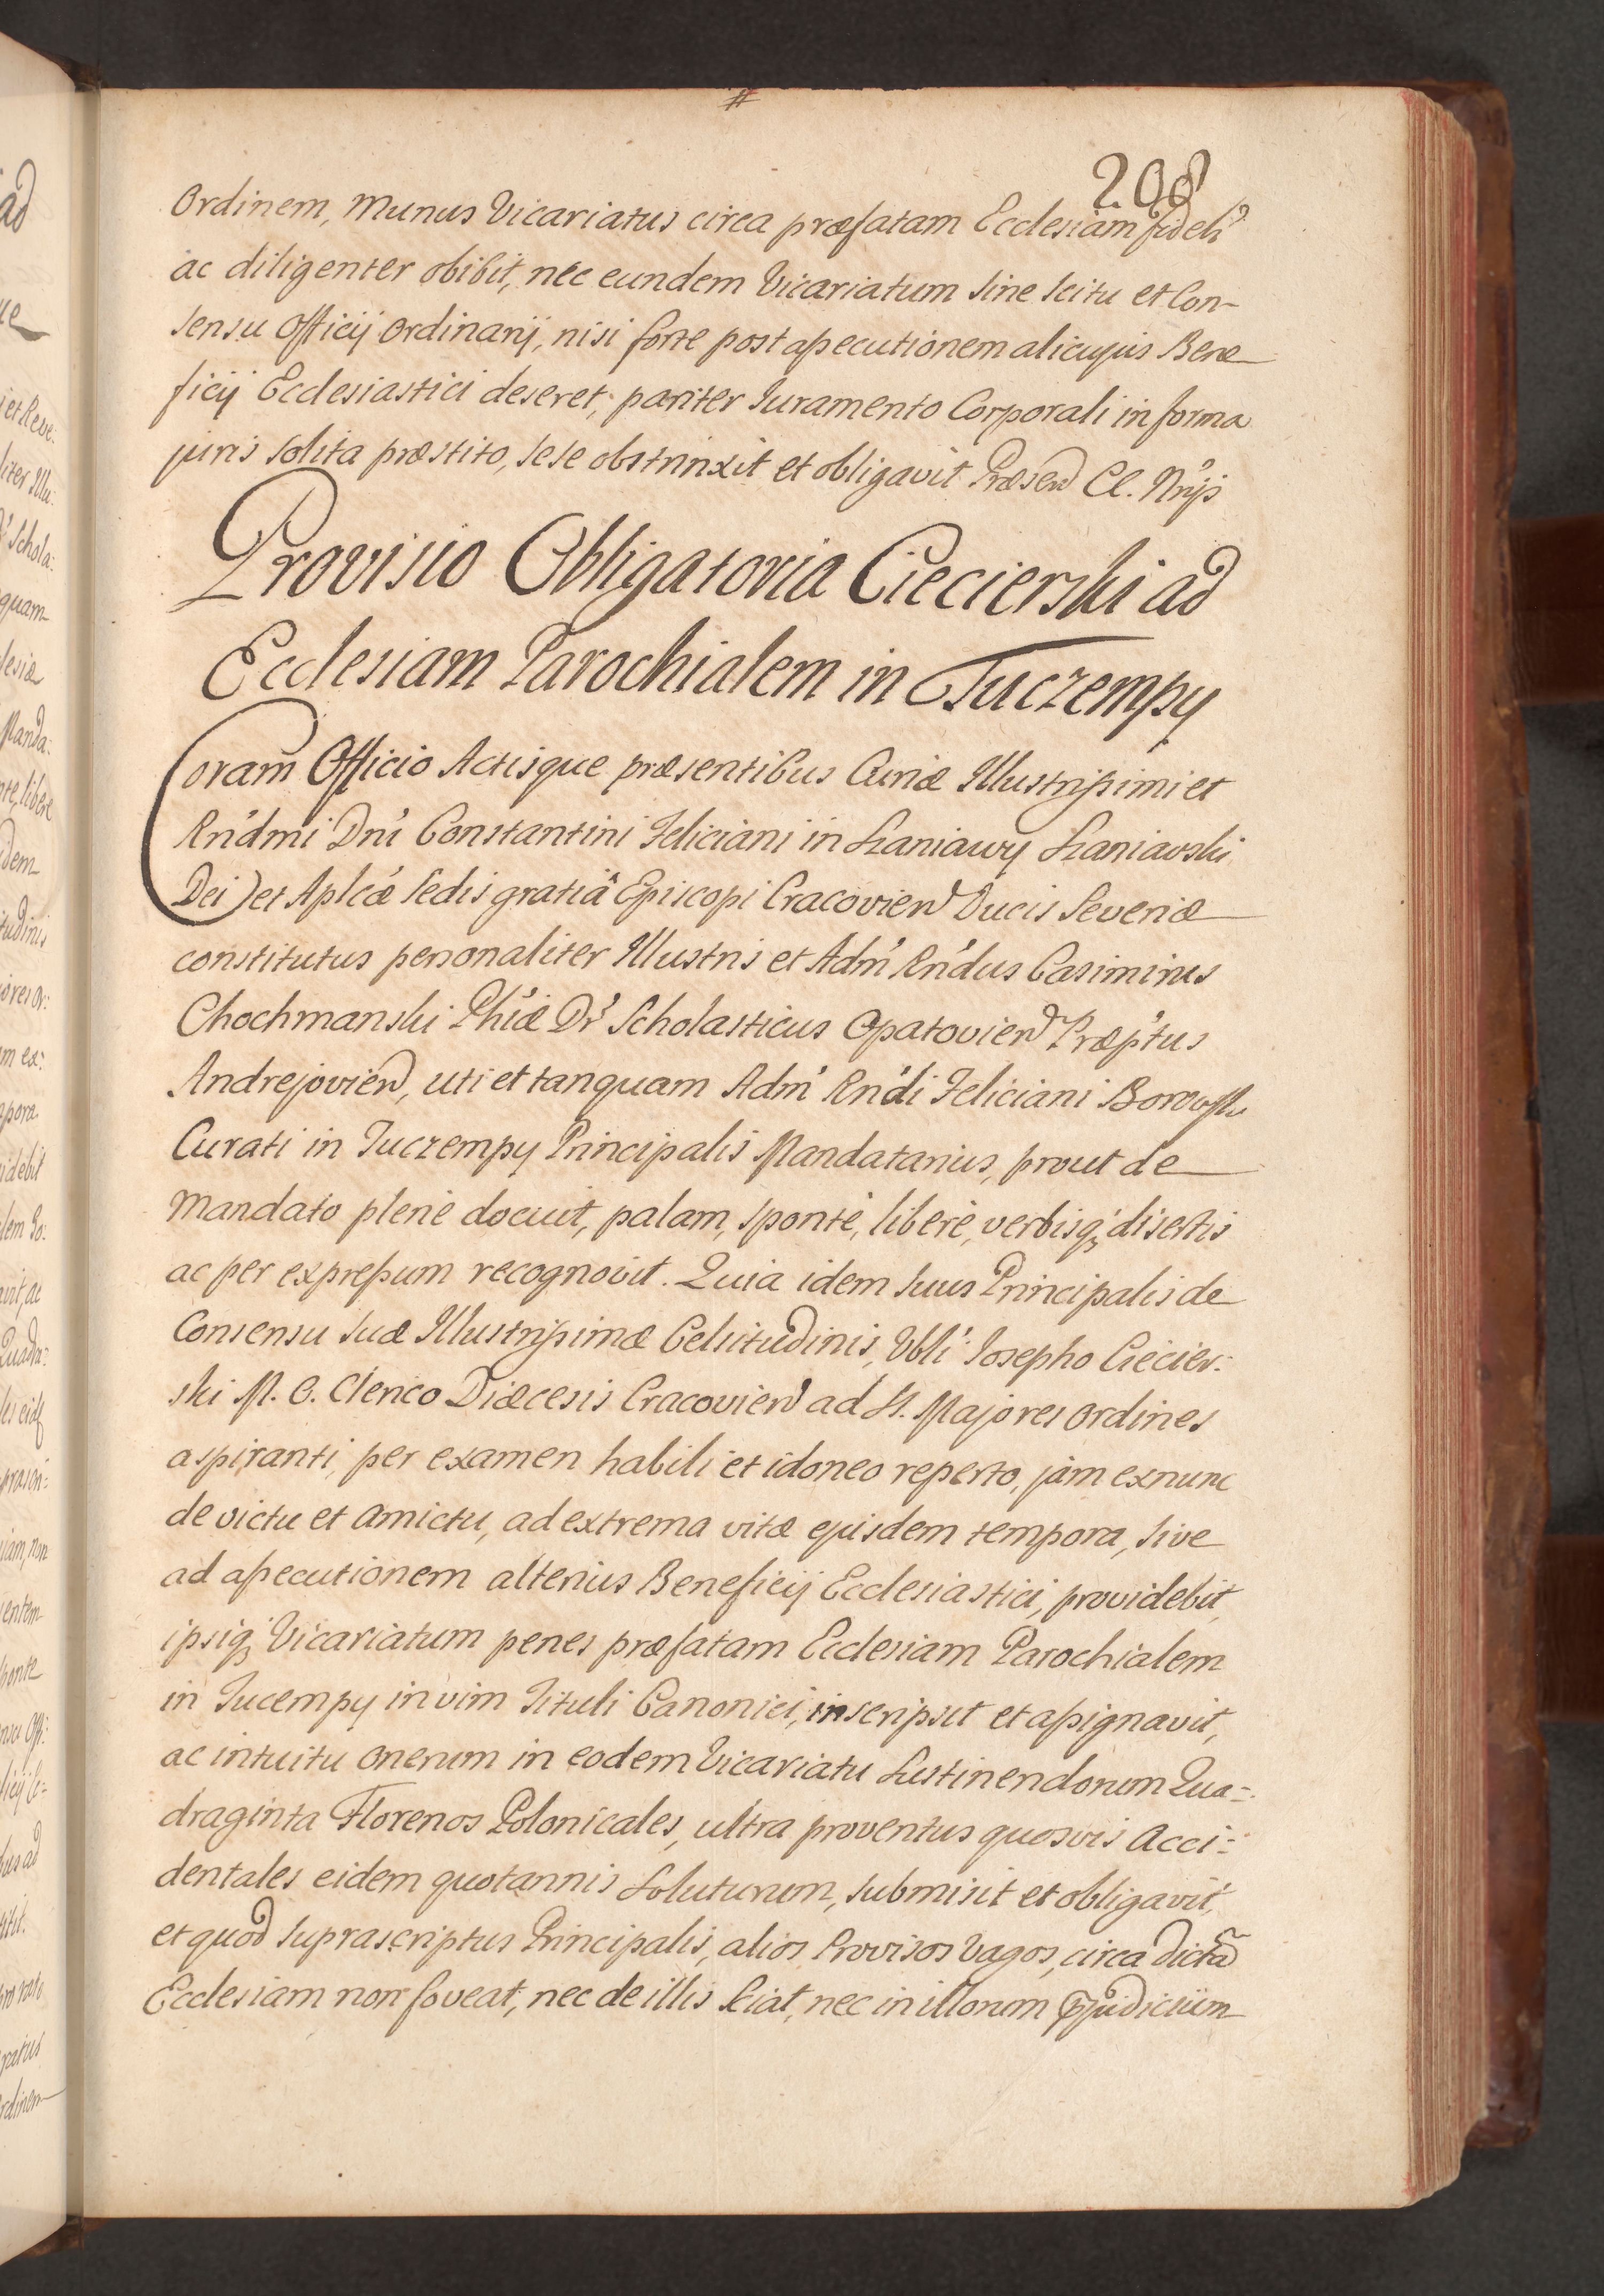 208
Ordinem, Munus Vicariatus circa præfatam Ecclesiam fidelr
ac diligenter obibit, nec eundem Vicariatum sine scitu et Con-
sensu Officij Ordinarij, nisi forte post assecutionem alicujus Bene
ficij Ecclesiastici deseret, pariter Iuramento Corporali in forma
juris solita præstito, sese obstrinxit et obligavit Præsen Cl. Nrijs
Provisio Obligatoria Ciecierski ad
Ecclesiam Parochialem in Tuczempy
Coram Officio Actisque præsentibus Curiæ Illustrissimi et
Rndmi Dni Constantini Feliciani in Szaniawy Szaniavski
Dei et Aplcæ Sedis gratiâ Episcopi Cracovien Ducis Severiæ
constitutus personaliter Illustris et Adm Rndus Casimirus
Chochmanski Phiæ Dr Scholasticus Opatovien Præptus
Andrejovien, uti et tanquam Adm Rndi Feliciani Borowski
Curati in Tuczempy Principalis Mandatarius, prout de
Mandato plene docuit, palam, sponte, libere, verbisq disertis
ac per expressum recognovit. Quia idem suus Principalis de
Consensu suæ Illustrissimæ Celsitudinis, Vbli Iosepho Ciecier:
ski M. O. Clerico Diæcesis Cracovien ad S. Majores ordines
aspiranti, per examen habili et idoneo reperto, jam exnunc
de victu et amictu, ad extrema vitæ ejusdem tempora, sive
ad assecutionem alterius Beneficij Ecclesiastici, providebit,
ipsiq Vicariatum penes præfatam Ecclesiam Parochialem
in Tucempy in vim Tituli Canonici, inscripsit et assignavit,
ac intuitu onerum in eodem Vicariatu Sustinendorum Qua=
draginta Florenos Polonicales, ultra proventus quosvis Acci=
dentales eidem quotannis Soluturum, submisit et obligavit,
et quod suprascriptus Principalis, alios Provisos vagos, circa dictã
Ecclesiam non foveat, nec de illis sciat, nec in illorum pjudicium